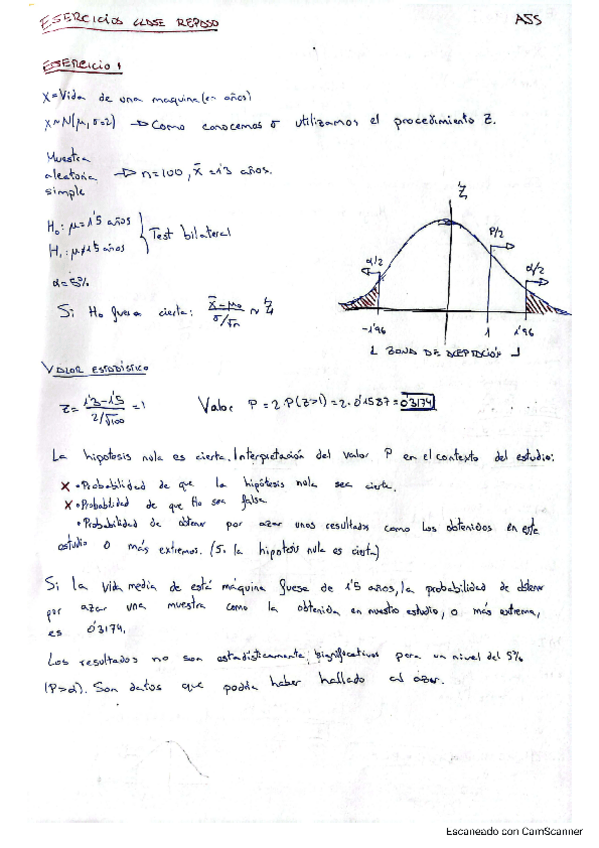 EJERCICIOS CLASE REPASO
ASS
EJERCICIO 1
X=Vida de una maquina (en años)
X~N(μ, σ=2) → Como conocemos σ utilizamos el procedimiento Z.
Muestra
aleatoria → n=100, x̄=1'3 años.
simple
H₀: μ=1'5 años
H₁: μ≠1'5 años
Test bilateral
α=5%
Si H₀ fuera cierta: x̄-μ₀ / σ/√n ~ Z
Z
P/2
α/2
α/2
-1'96
1
1'96
ZONA DE ACEPTACIÓN
VALOR ESTADÍSTICO
Z= 1'3-1'5 / 2/√100 =1
Valor P = 2·P(Z>1)=2·0'1587=0'3174
La hipotesis nula es cierta. Interpretación del valor P en el contexto del estudio:
x • Probabilidad de que la hipótesis nula sea cierta.
x • Probabilidad de que H₀ sea falsa.
• Probabilidad de obtener por azar unos resultados como los obtenidos en este
estudio o más extremos. (Si la hipotesis nula es cierta)
Si la vida media de está máquina fuese de 1'5 años, la probabilidad de obtener
por azar una muestra como la obtenida en nuestro estudio, o más extrema,
es 0'3174.
Los resultados no son estadísticamente significativos para un nivel del 5%
(P>α). Son datos que podría haber hallado al azar.
Escaneado con CamScanner